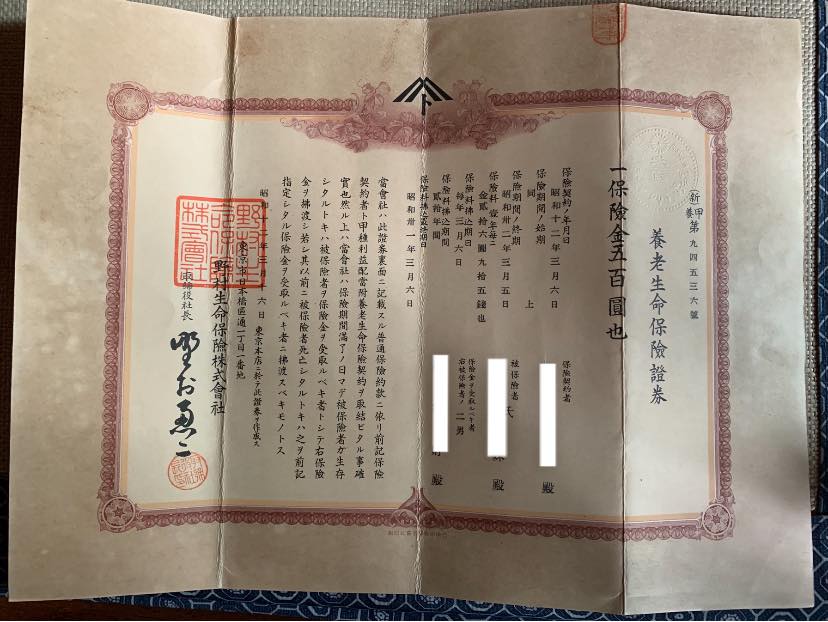 (新甲養)第九四五三六號
養老生命保險證券
一保險金五百圓也
保險契約ノ年月日
昭和十二年三月六日
保險期間ノ始期
同上
保險期間ノ終期
昭和卅二年三月五日
保險料壹年每ニ
金貳拾六圓九拾五錢也
保險料拂込期日
每年三月六日
保險料拂込期間
貳拾年間
保險料拂込最終期日
昭和卅一年三月六日
保險契約者
殿
被保險者氏
殿
保險金ヲ受取ルベキ者
右被保險者ノ二男
殿
當會社ハ此證券裏面ニ記載スル普通保險約款ニ依リ前記保險
契約者ト甲種利益配當附養老生命保險契約ヲ取結ビタル事確
實也然ル上ハ當會社ハ保險期間滿了ノ日マデ被保險者ガ生存
シタルトキハ被保險者ヲ保險金ヲ受取ルベキ者トシテ右保險
金ヲ拂渡シ若シ其以前ニ被保險者死亡シタルトキハ之ヲ前記
指定シタル保險金ヲ受取ルベキ者ニ拂渡スベキモノトス
昭和年三月六日東京本店ニ於テ此證券ヲ作成ス
東京市日本橋區通一丁目一番地
野村生命保險株式會社
取締役社長